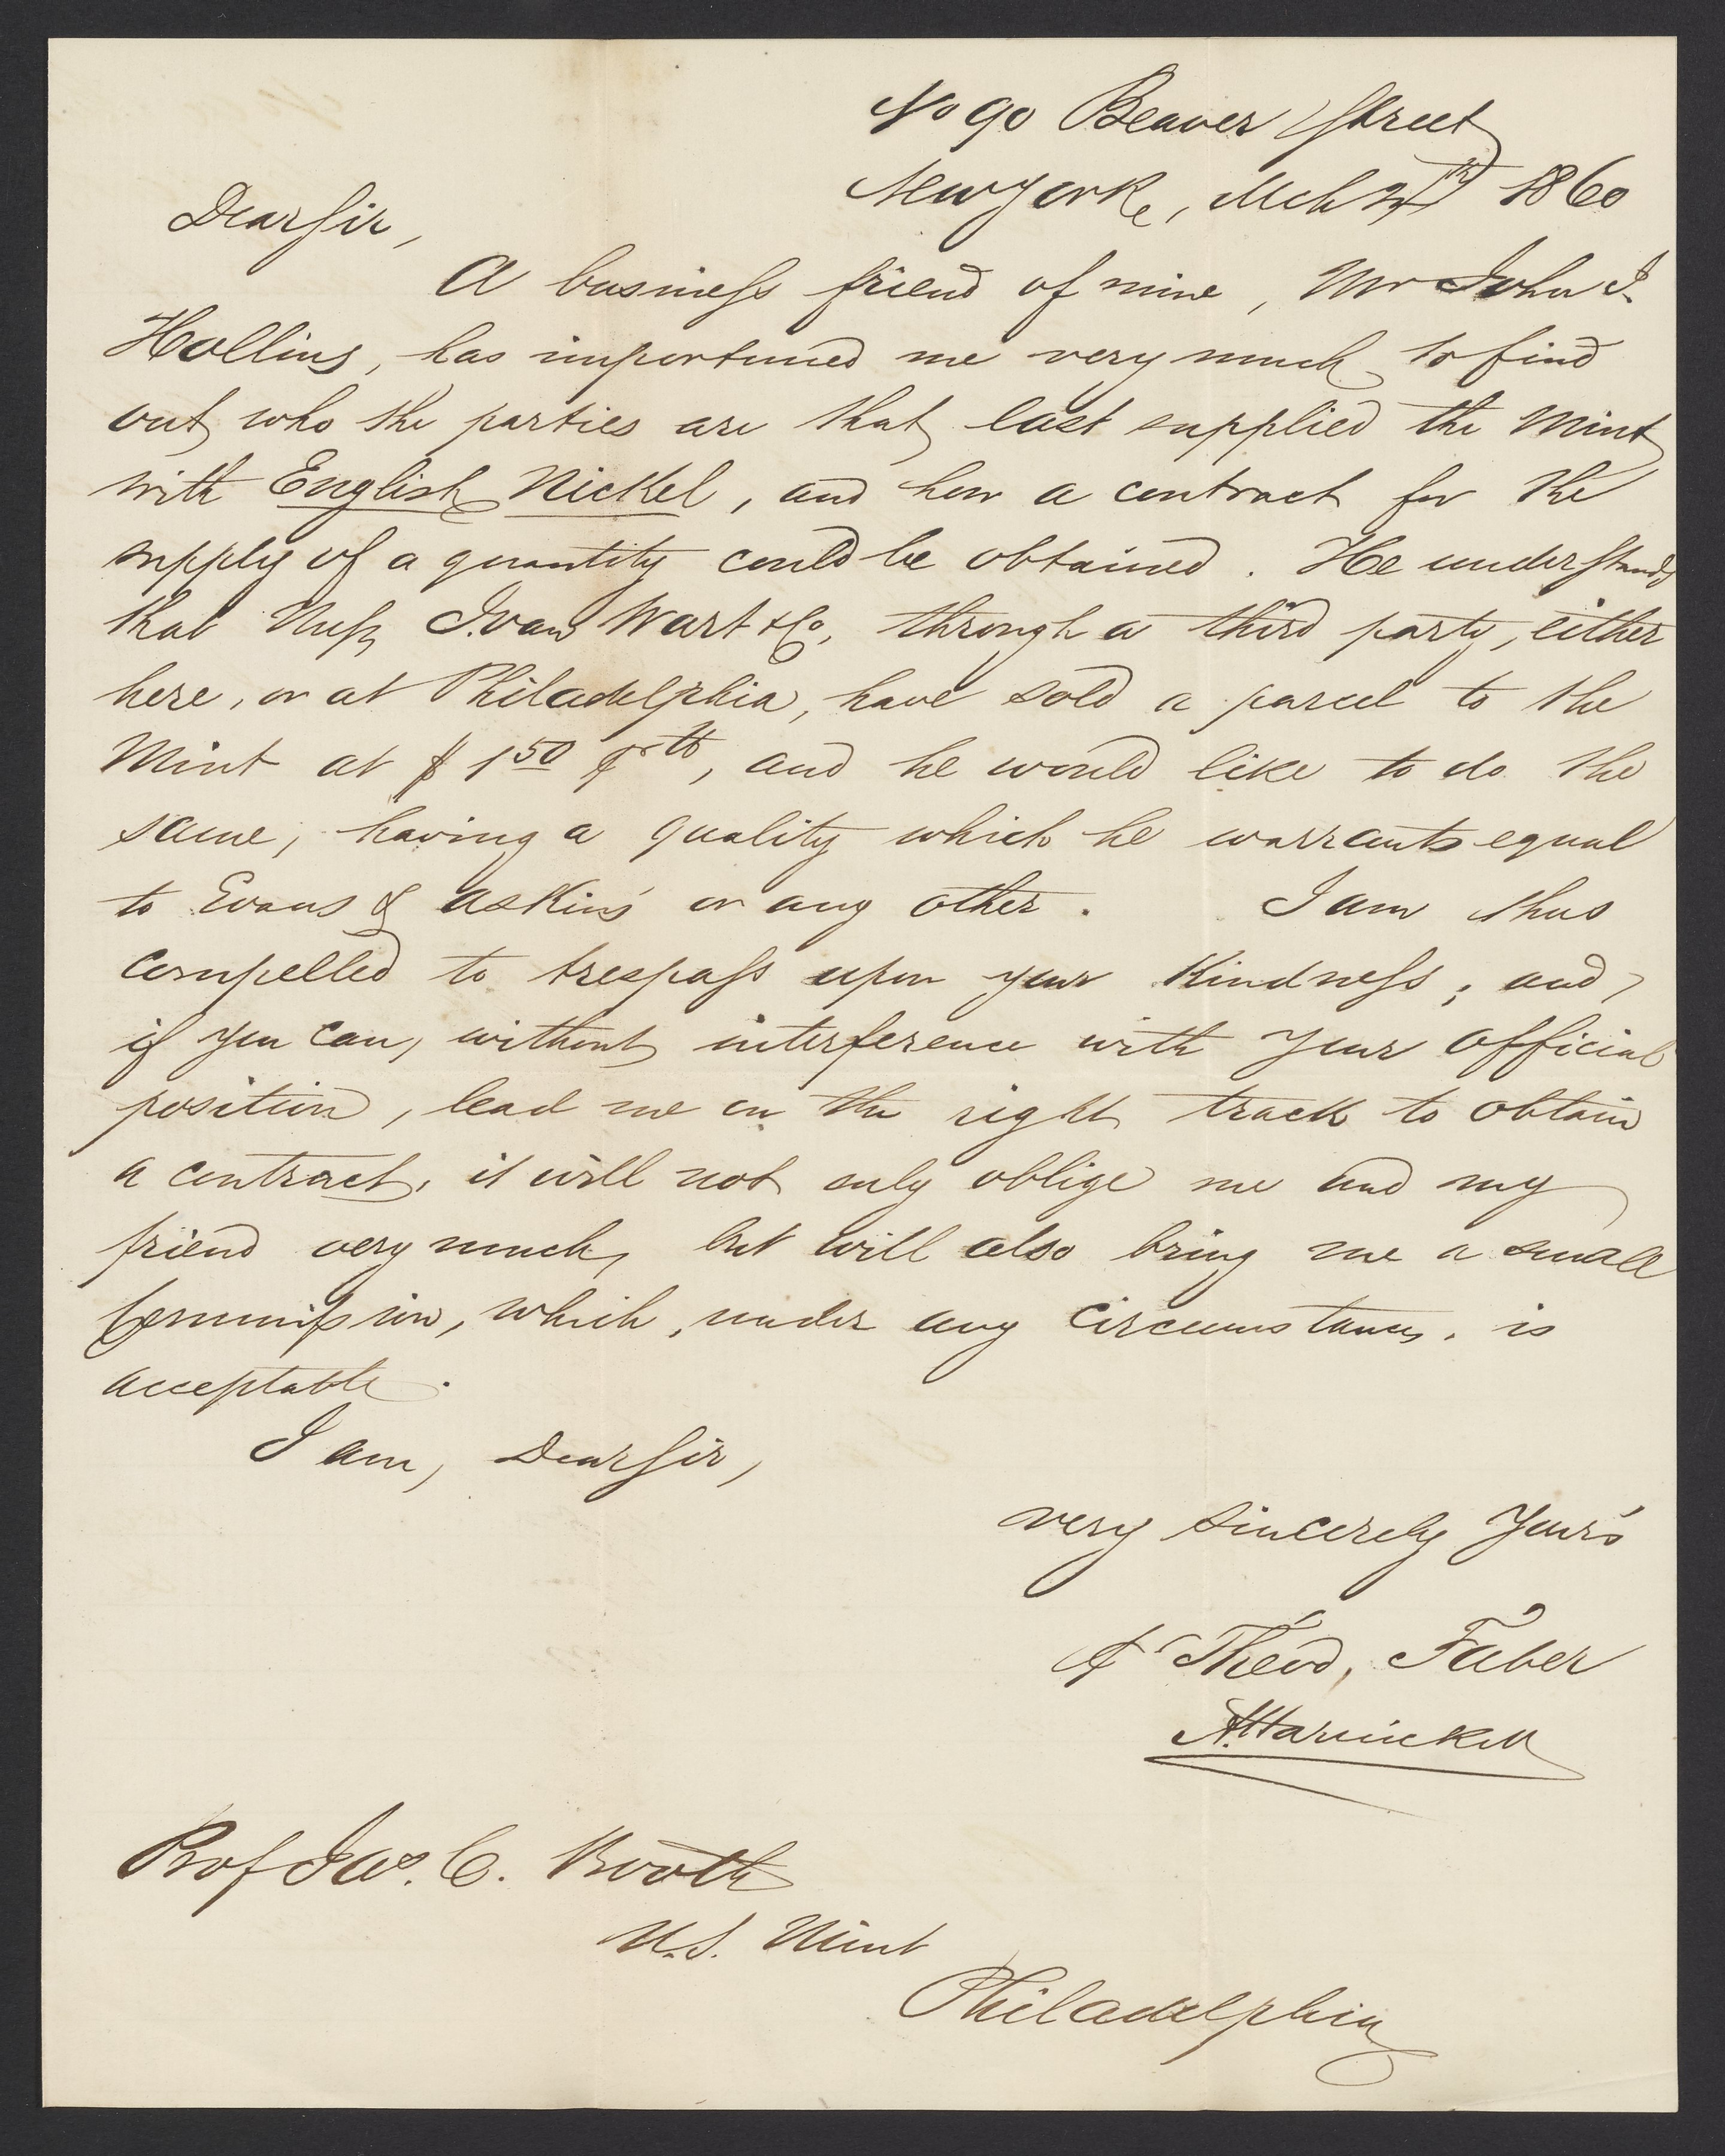 No 90 Beaver Street
New York, Mch 1860
Dear Sir,
A business friend of mine, Mr John J.
Hollins, has importuned me very much to find
out who the parties are that last supplied the Mint
with English Nickel, and how a contract for the
supply of a quantity could be obtained. He understands
that Mess J. van Wart & Co, through a third party, either
here, or at Philadelphia, have sold a parcel to the
Mint at $ 1 50 pr lb, and he would like to do the
same, having a quality which he warrants equal
to Evans & Askins' or any other. I am thus
compelled to trespass upon your kindness; and,
if you can, without interference with your official
position, lead me on the right track to obtain
a contract, it will not only oblige me and my
friend very much, but will also bring me a small
Commission, which, under any circumstances, is
acceptable.
I am, Dear Sir,
very sincerely Your's
Theod. Faber
Prof Jas. C. Booth
U.S. Mint
Philadelphia